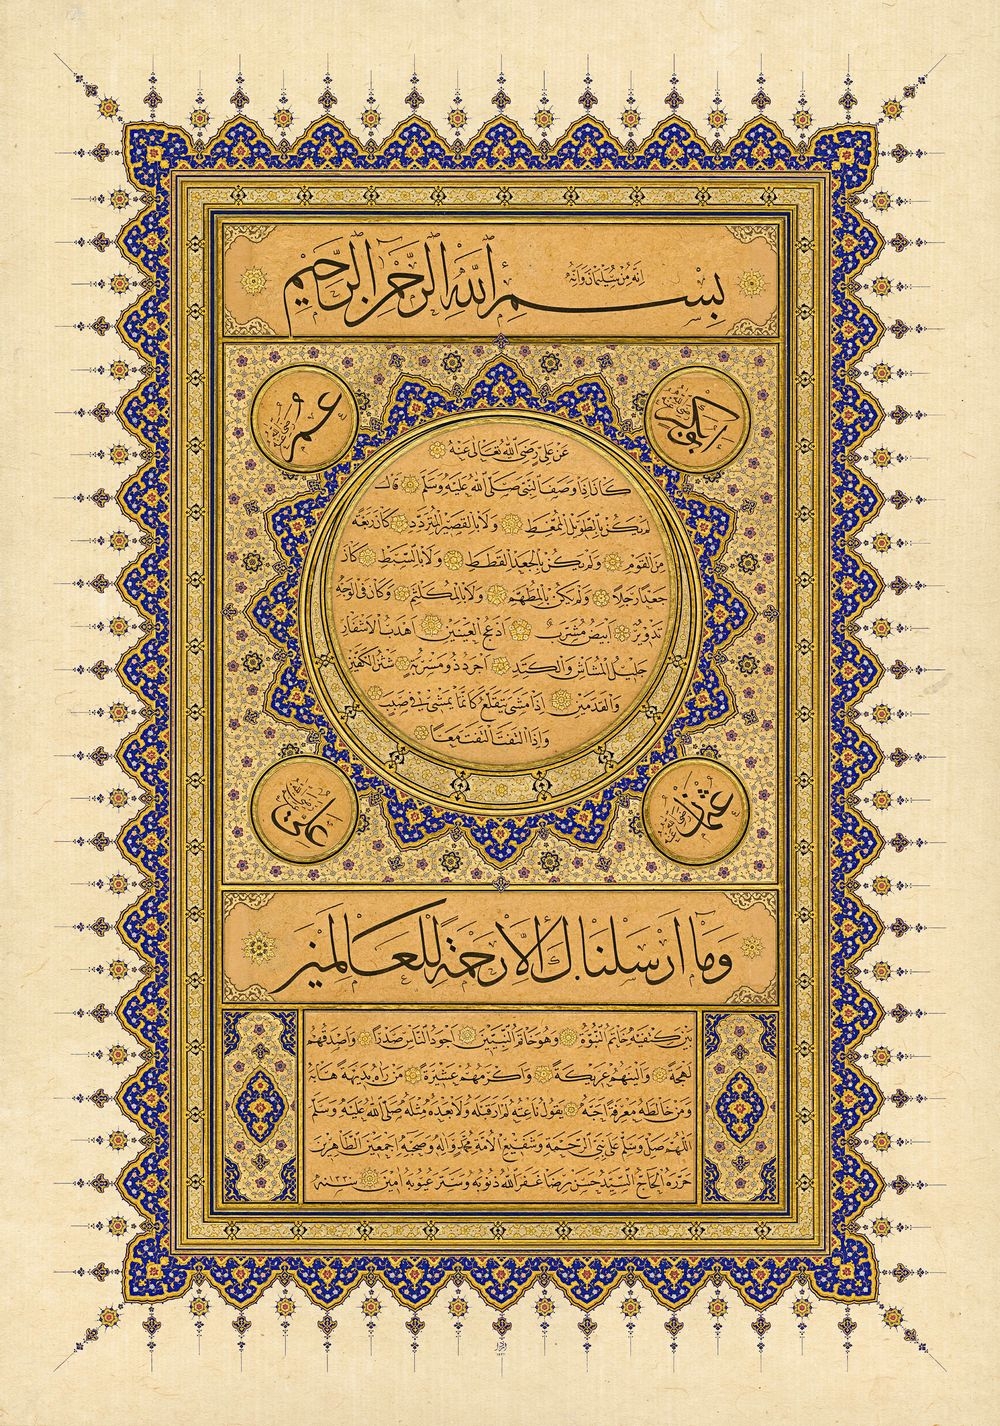 انه من سليمان وانه
بسم الله الرحمن الرحيم
ابوبكر رضي الله عنه
عمر رضي الله عنه
عن علي رضي الله تعالى عنه
كان اذا وصف النبي صلى الله عليه وسلم قال
لم يكن بالطويل الممغط ولا بالقصير المتردد كان ربعة
من القوم ولم يكن بالجعد القطط ولا بالسبط كان
جعدا رجلا ولم يكن بالمطهم ولا بالمكلثم وكان في الوجه
تدوير ابيض مشرب ادعج العينين اهدب الاشفار
جليل المشاش والكتد اجرد ذو مسربة شثن الكفين
والقدمين اذا مشى يتقلع كانما يمشي في صبب
واذا التفت التفت معا
عثمان رضي الله عنه
علي رضي الله عنه
وما ارسلناك الا رحمة للعالمين
بين كتفيه خاتم النبوة وهو خاتم النبيين اجود الناس صدرا واصدقهم
لهجة والينهم عريكة واكرمهم عشيرة من راه بديهة هابه
ومن خالطه معرفة احبه يقول ناعته لم ار قبله ولا بعده مثله صلى الله عليه وسلم
اللهم صل وسلم على نبي الرحمة وشفيع الامة محمد واله وصحبه اجمعين الطاهرين
حرره الحاج السيد حسن رضا غفر الله ذنوبه وستر عيوبه امين سنه